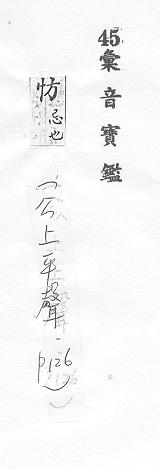 45彙音寶鑑
妨 忌也
(公上平聲·P.126)